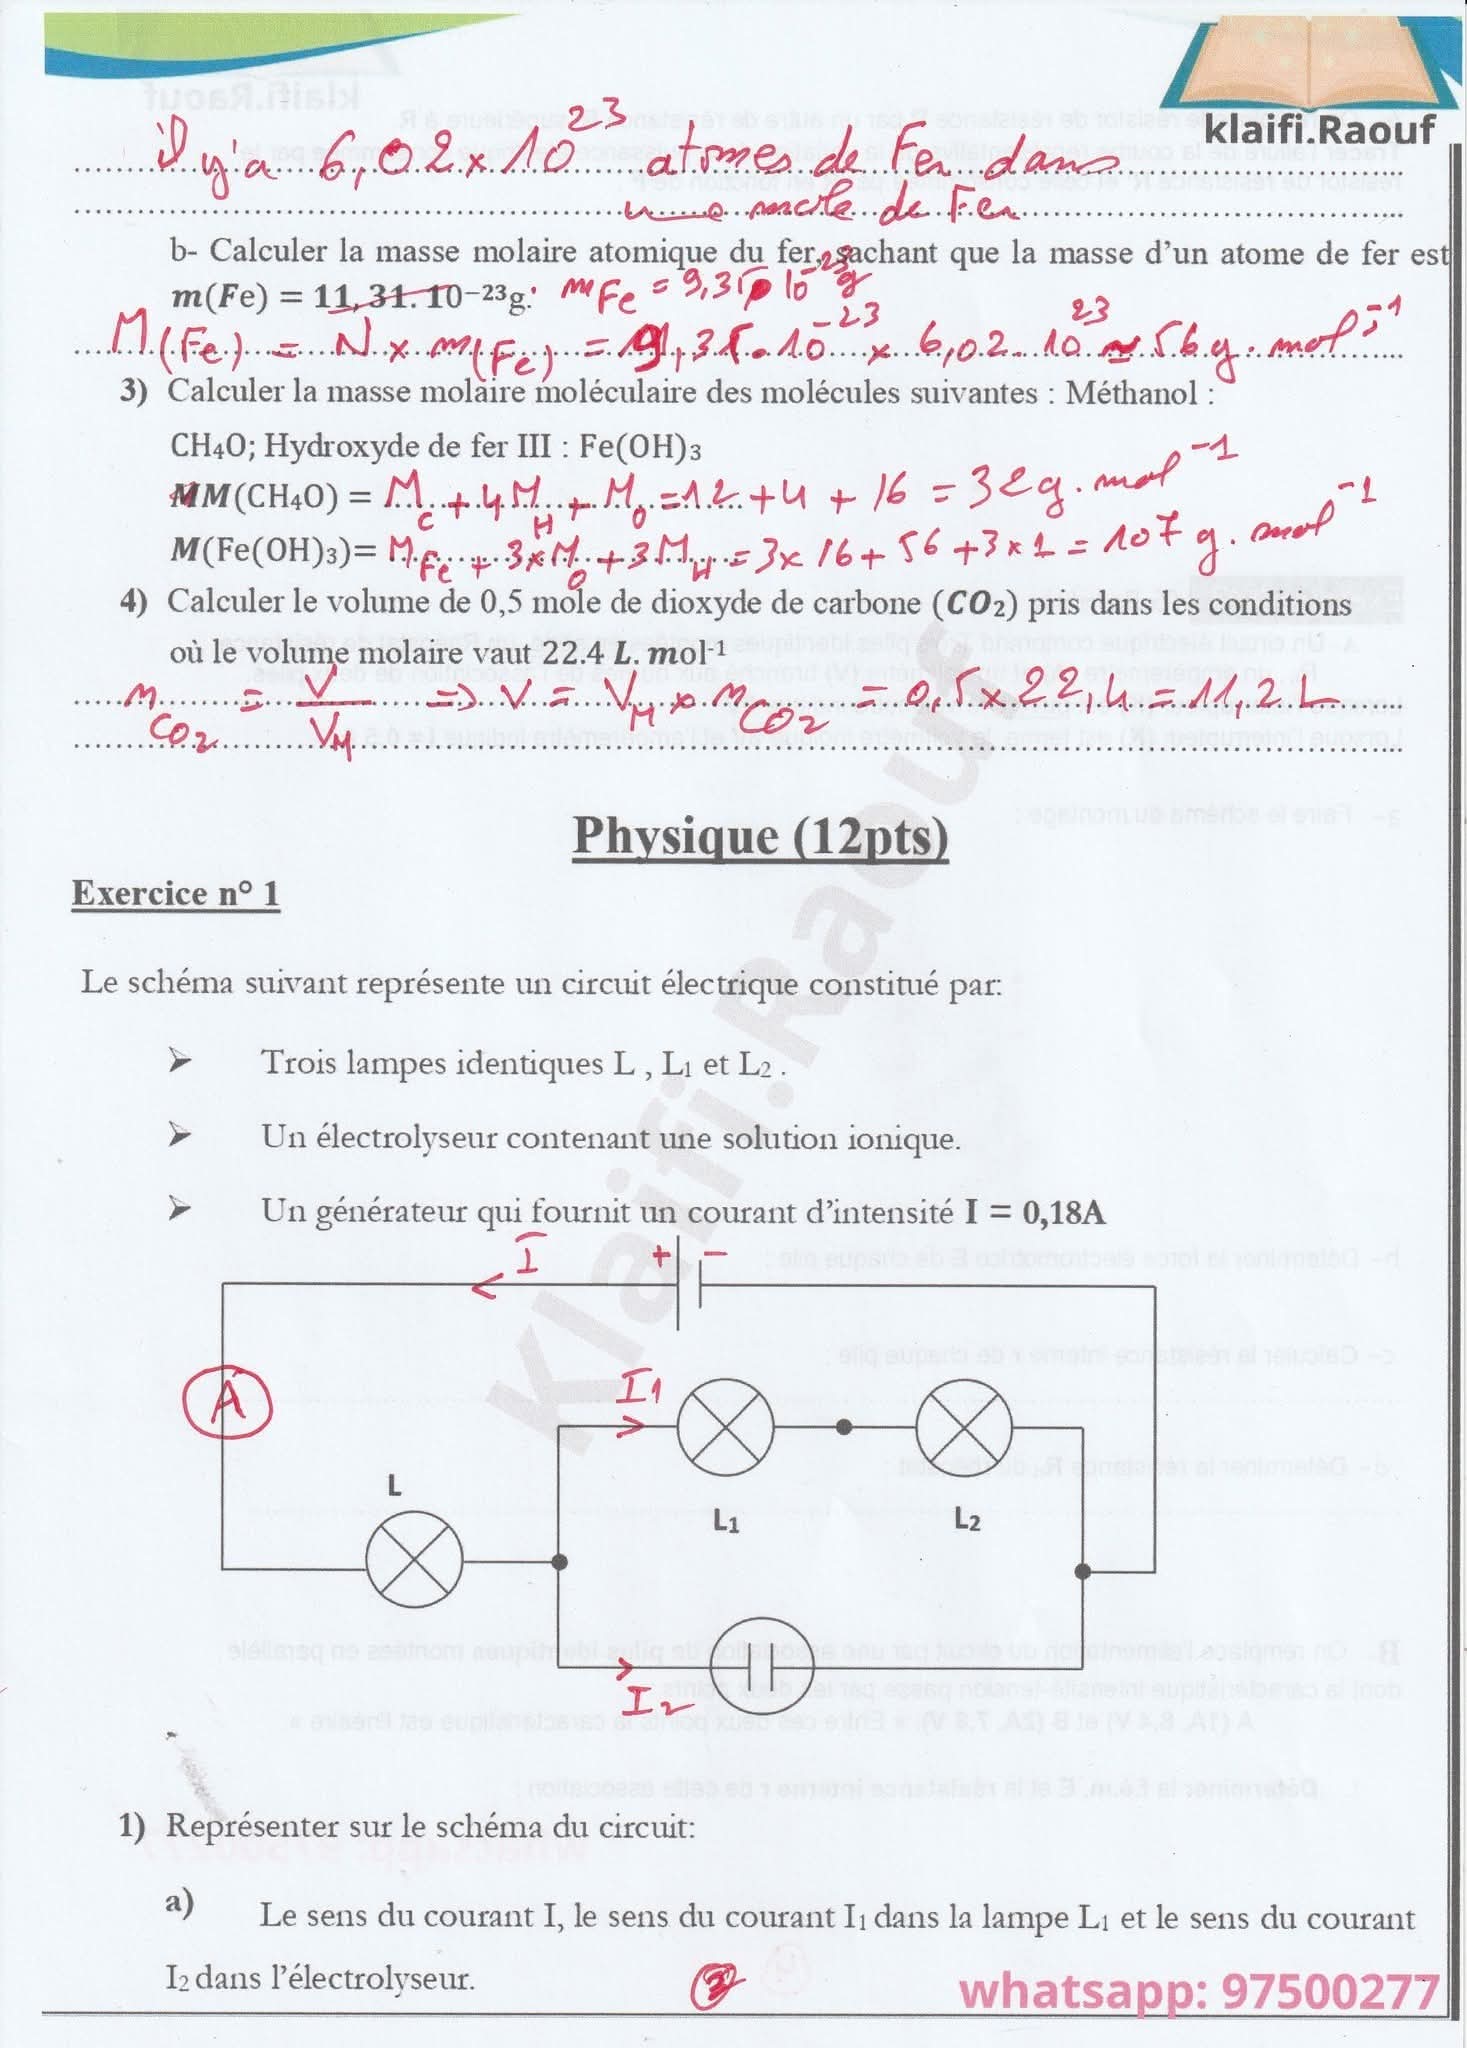 klaifi.Raouf
il y'a 6,02 × 10²³ atomes de Fer dans
une mole de Fer
b- Calculer la masse molaire atomique du fer, sachant que la masse d'un atome de fer est
m(Fe) = 11,31.10⁻²³g. mFe = 9,31 10⁻²³ g
M(Fe) = N × m(Fe) = 9,31.10⁻²³ × 6,02.10²³ ≈ 56 g.mol⁻¹
3) Calculer la masse molaire moléculaire des molécules suivantes : Méthanol :
CH₄O; Hydroxyde de fer III : Fe(OH)₃
MM(CH₄O) = M_C + 4M_H + M_O = 12 + 4 + 16 = 32 g.mol⁻¹
M(Fe(OH)₃)= M_Fe + 3×M_O + 3M_H = 3×16 + 56 + 3×1 = 107 g.mol⁻¹
4) Calculer le volume de 0,5 mole de dioxyde de carbone (CO₂) pris dans les conditions
où le volume molaire vaut 22.4 L. mol⁻¹
n_CO₂ = V/V_M => V = V_M × n_CO₂ = 0,5×22,4 = 11,2 L
Physique (12pts)
Exercice n° 1
Le schéma suivant représente un circuit électrique constitué par:
➤ Trois lampes identiques L , L₁ et L₂ .
➤ Un électrolyseur contenant une solution ionique.
➤ Un générateur qui fournit un courant d'intensité I = 0,18A
Klaifi.Raouf
I + -
A
I1
L
L₁ L₂
I2
1) Représenter sur le schéma du circuit:
a) Le sens du courant I, le sens du courant I₁ dans la lampe L₁ et le sens du courant
I₂ dans l'électrolyseur.
whatsapp: 97500277